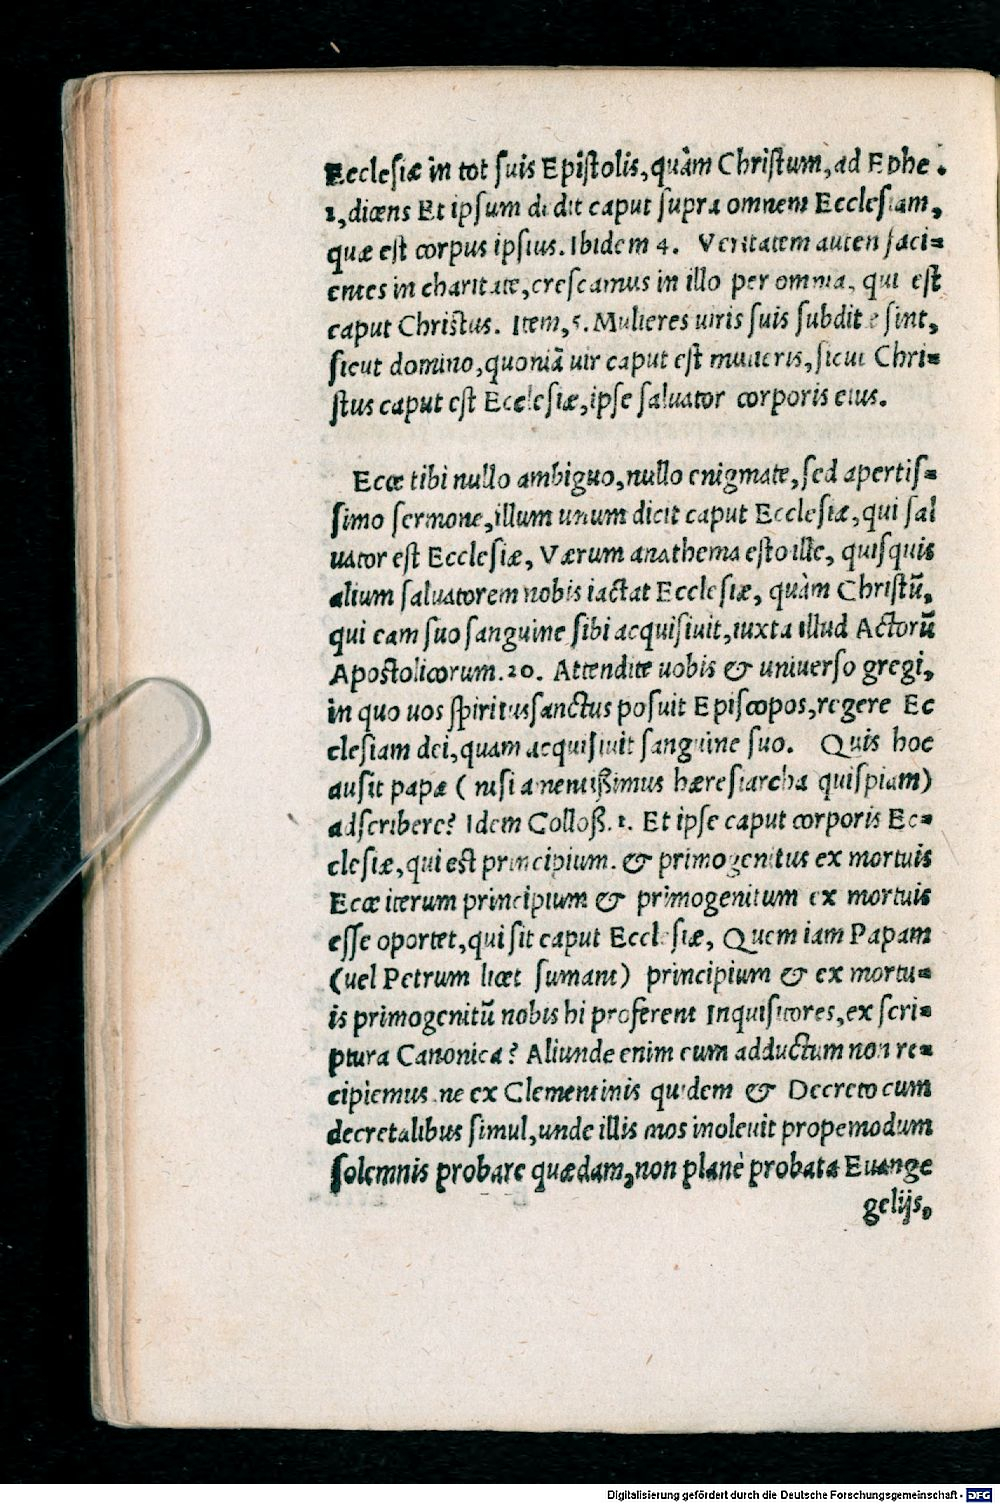 Ecclesiæ in tot suis Epistolis, quàm Christum, ad Ephe.
1, dicens Et ipsum dedit caput supra omnem Ecclesiam,
quæ est corpus ipsius. Ibidem 4. Veritatem autem faci=
entes in charitate, crescamus in illo per omnia, qui est
caput Christus. Item, 5. Mulieres uiris suis subditæ sint,
sicut domino, quoniã uir caput est mulieris, sicut Chri=
stus caput est Ecclesiæ, ipse saluator corporis eius.
Ecce tibi nullo ambiguo, nullo enigmate, sed apertis=
simo sermone, illum unum dicit caput Ecclesiæ, qui sal
uator est Ecclesiæ, Værum anathema esto ille, quisquis
alium saluatorem nobis iactat Ecclesiæ, quàm Christũ,
qui eam suo sanguine sibi acquisiuit, iuxta illud Actorũ
Apostolicorum. 20. Attendite uobis & uniuerso gregi,
in quo uos spiritussanctus posuit Episcopos, regere Ec
clesiam dei, quam acquisiuit sanguine suo. Quis hoc
ausit papæ ( nisi amentißimus hæresiarcha quispiam)
adscribere? Idem Colloß. 1. Et ipse caput corporis Ec=
clesiæ, qui est principium. & primogenitus ex mortuis
Ecce iterum principium & primogenitum ex mortuis
esse oportet, qui sit caput Ecclesiæ, Quem iam Papam
(uel Petrum licet sumant) principium & ex mortu=
is primogenitũ nobis hi proferent Inquisitores, ex scri=
ptura Canonica? Aliunde enim eum adductum non re=
cipiemus ne ex Clementinis quidem & Decreto cum
decretalibus simul, unde illis mos inoleuit propemodum
solemnis probare quædam, non planè probata Euange
gelijs,
Digitalisierung gefördert durch die Deutsche Forschungsgemeinschaft - DFG